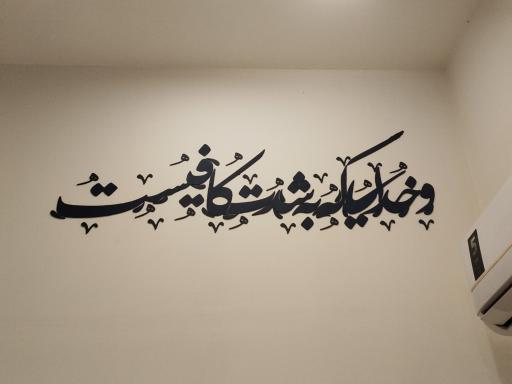 و خدایی که به شدت کافیست